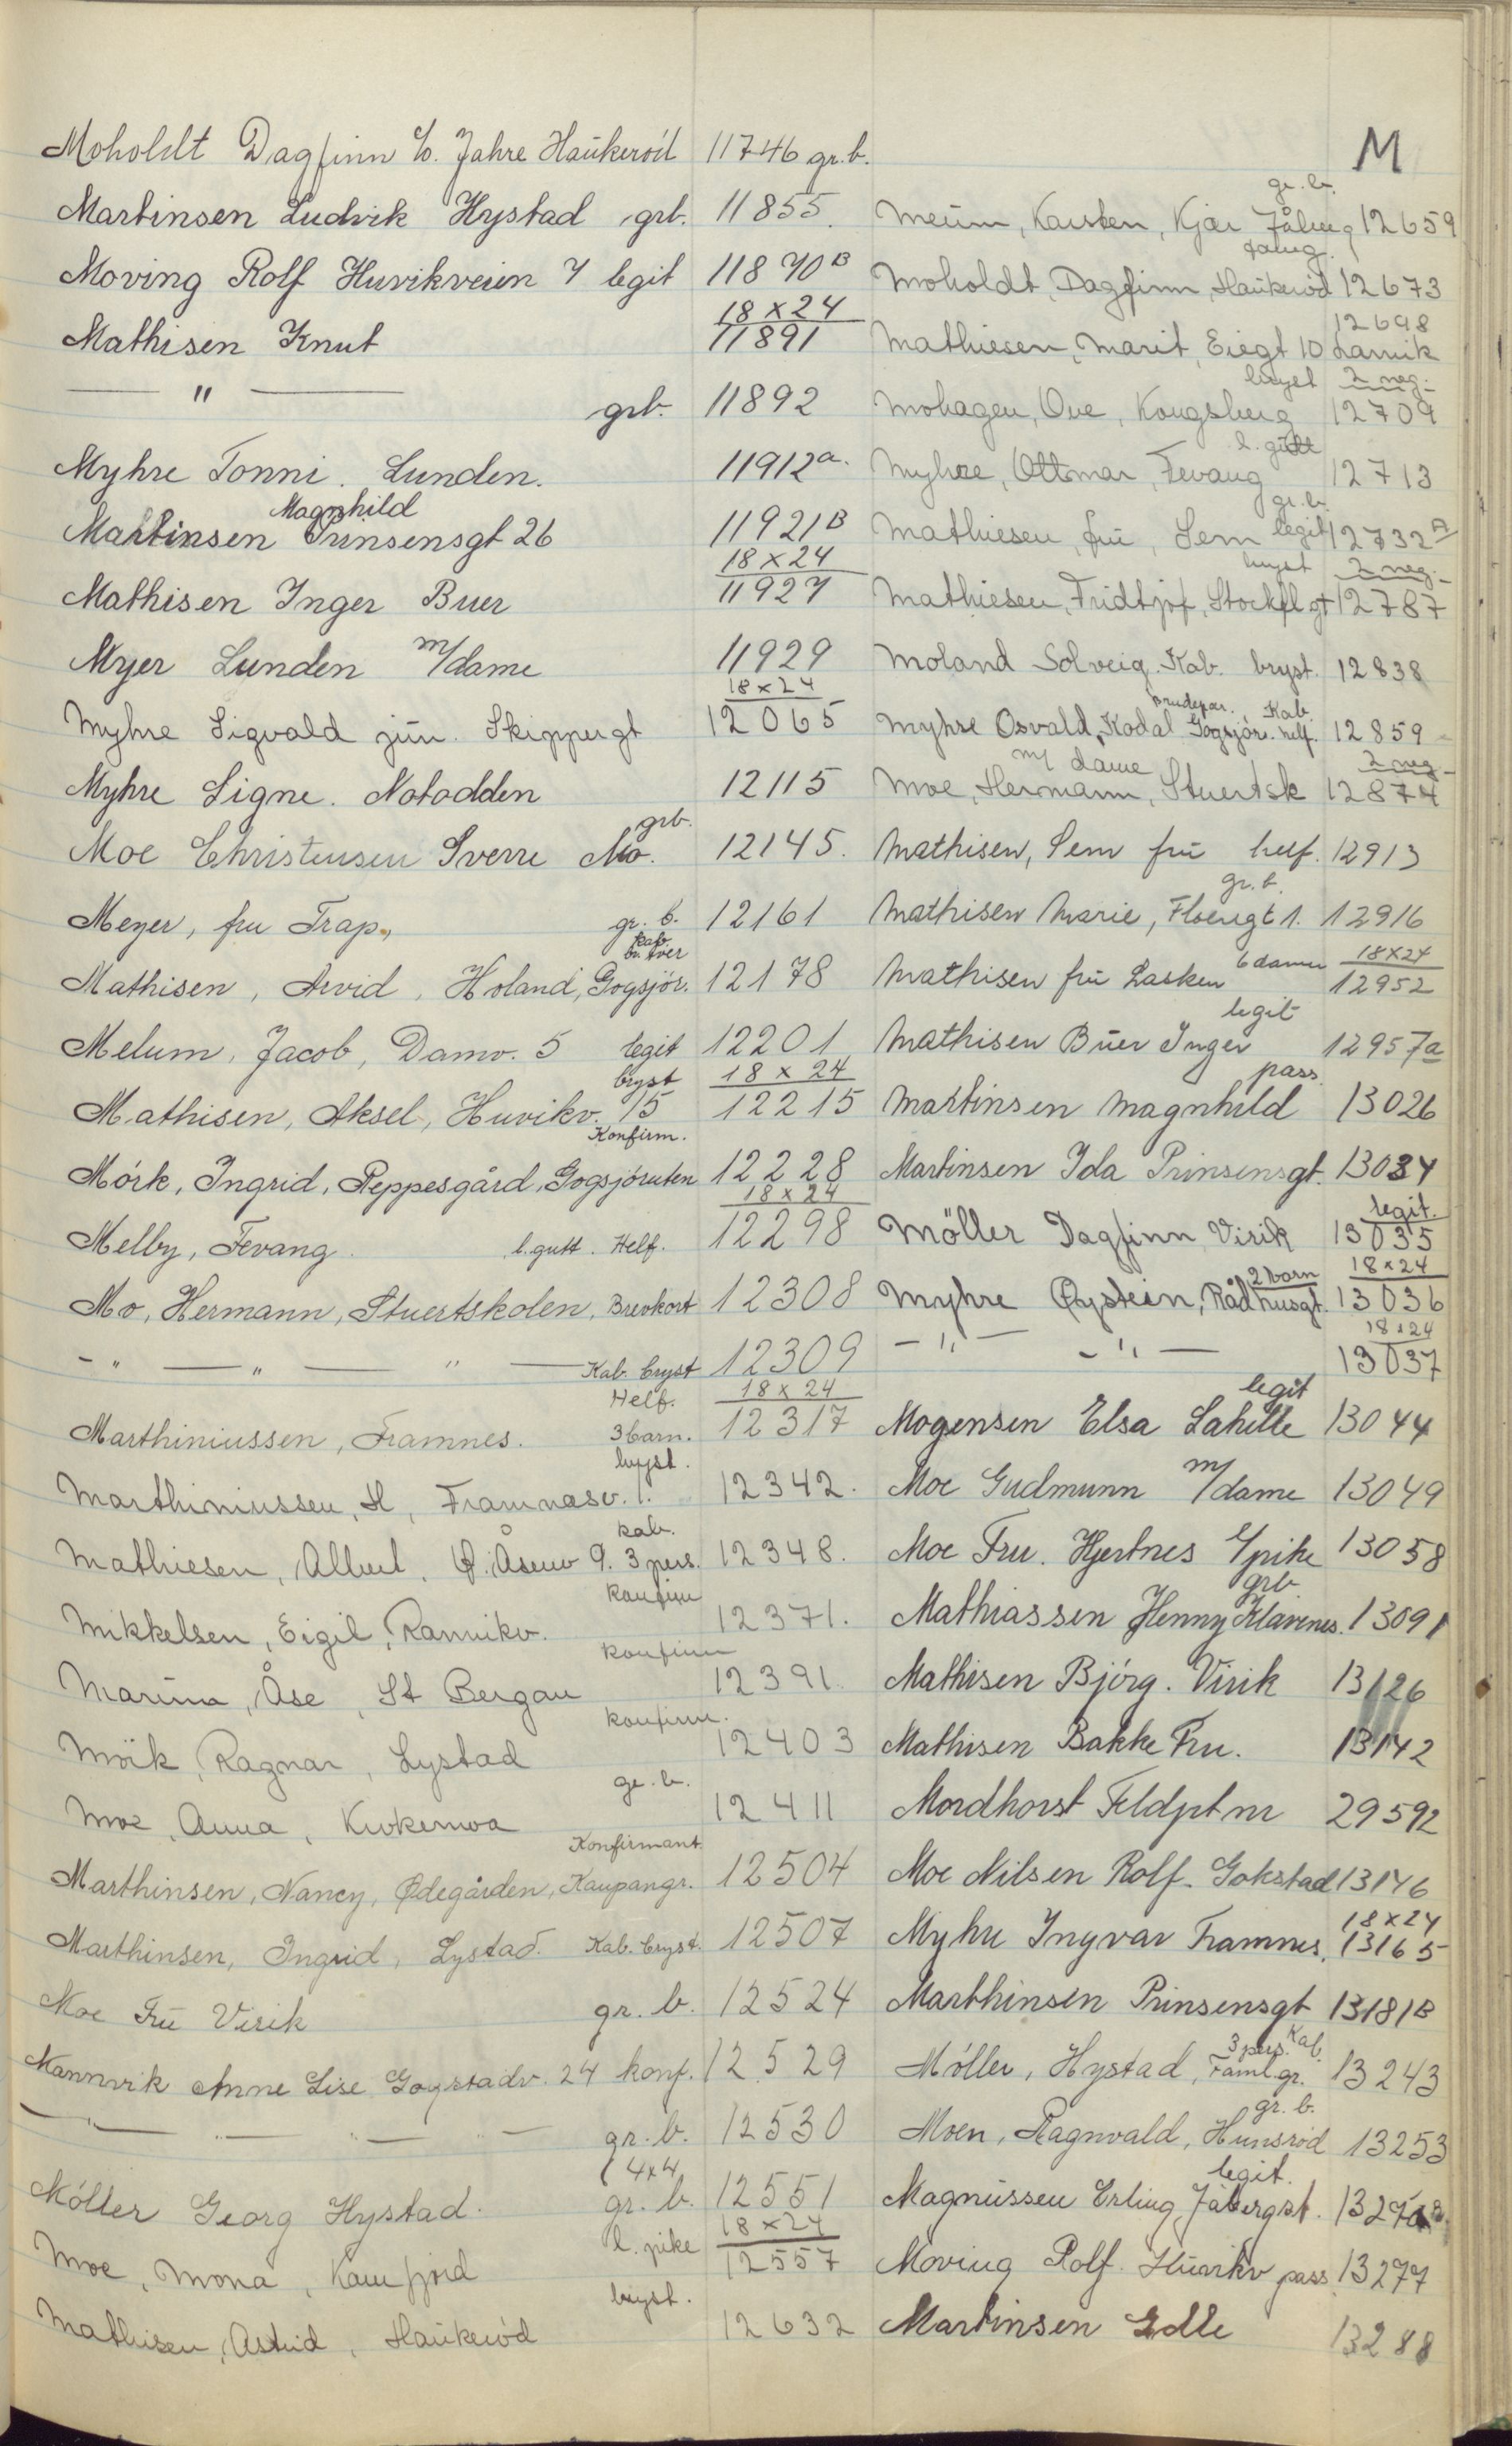 M
Moholdt Dagfinn c/o. Jahre Haukeröd 11746 gr.b.
Martinsen Ludvik Hystad grb. 11855.
Moving Rolf Huvikveien 7 legit 11870B
Mathisen Knut 18x24 11891
— " — grb. 11892
Myhre Tonni. Lunden. 11912a.
Martinsen Magnhild Prinsensgt 26 11921B
Mathisen Inger Buer 18x24 11927
Myer Lunden m/dame 11929
Myhre Sigvald jun. Skippergt 18x24 12065
Myhre Signe. Notodden 12115
Moe Christensen Sverre Mo. grb. 12145.
Meyer, fru Trap., gr. b. 12161
Mathisen, Arvid, Holand, Gogsjör. kab. 12178
Melum, Jacob, Damv. 5 legit 12201
Mathisen, Aksel, Huvikv. 15 bryst 18x24 12215
Mörk, Ingrid, Peppesgård, Gogsjöruten Konfirm. 12228
Melby, Fevang. l.gutt. Helf. 18x24 12298
Mo, Hermann, Stuertskolen, Brevkort 12308
- " — " — " — Kab. bryst 12309
Marthiniussen, Framnes. Helf. 3 barn. 18x24 12317
Marthiniussen, H, Framnesv. 1. bryst. 12342.
Mathiesen, Albert, Ø. Åsenv 9. 3 pers. kab. 12348.
Mikkelsen, Eigil, Ranvikv. konfirm 12371.
Marina, Åse, St Bergan konfirm 12391.
Mörk, Ragnar, Lystad konfirm. 12403
Moe, Anna, Krokemoa gr. b. 12411
Marthinsen, Nancy, Ødegården, Kaupangr. Konfirmant. 12504
Marthinsen, Ingrid, Lystad. Kab. bryst. 12507
Moe Fru Virik gr. b. 12524
Mannvik Anne Lise Gogstadv. 24 konf. 12529
— " — " — " — gr. b. 12530
Möller Georg Hystad. 4x4 gr. b. 12551
Moe, Mona, Kamfjord l. pike 18x24 12557
Mathisen, Astrid, Haukeröd bryst. 12632
Meum, Karsten, Kjær Jåberg gr. b. 12659
Moholdt, Dagfinn, Haukeröd 12673
Mathiesen, Marit, Eiegt 10 Larvik 12698
Mohagen, Ove, Kongsberg bryst 2 neg. 12709
Myhre, Ottmar, Fevang l. gutt 12713
Mathiesen, fru, Sem gr. b. legit 12732A
Mathiesen, Fridtjof, Stockfl gt bryst 2 neg. 12787
Moland Solveig. Kab. bryst. 12838
Myhre Osvald, Kodal Gogsjör. Brudepar. Kab. helf. 12859
Moe, Hermann, Stuertsk m/ dame 2 neg. 12874
Mathisen, Sem fru helf. 12913
Mathisen Marie, Floengt 1. gr. b. 12916
Mathisen fru Lasken 6 damer 18x24 12952
Mathisen Buer Inger legit 12957a
Martinsen Magnhild pass. 13026
Martinsen Ida Prinsensgt. 13034
Möller Dagfinn Virik legit. 13035
Myhre Øystein, Rådhusgt. 2 barn 18x24 13036
- " — - " — 18x24 13037
Mogensen Elsa Lahelle legit 13044
Moe Gudmunn m/dame 13049
Moe Fru. Hjertnes l/pike 13058
Mathiassen Henny Klavenes. grb 13091
Mathisen Bjørg. Virik 13126
Mathisen Bakke Fru. 13142
Mordhorst Feldpt nr 29592
Moe Nilsen Rolf. Gokstad 13146
Myhre Ingvar Framnes. 18x24 13165
Marthinsen Prinsensgt 13181B
Möller, Hystad, Faml.gr. 3 pers. Kab. 13243
Moen, Ragnvald, Hunsröd gr. b. 13253
Magnussen Erling Jåbergst. legit.
Moving Rolf. Huvikv pass 13277
Martinsen Edle 13288